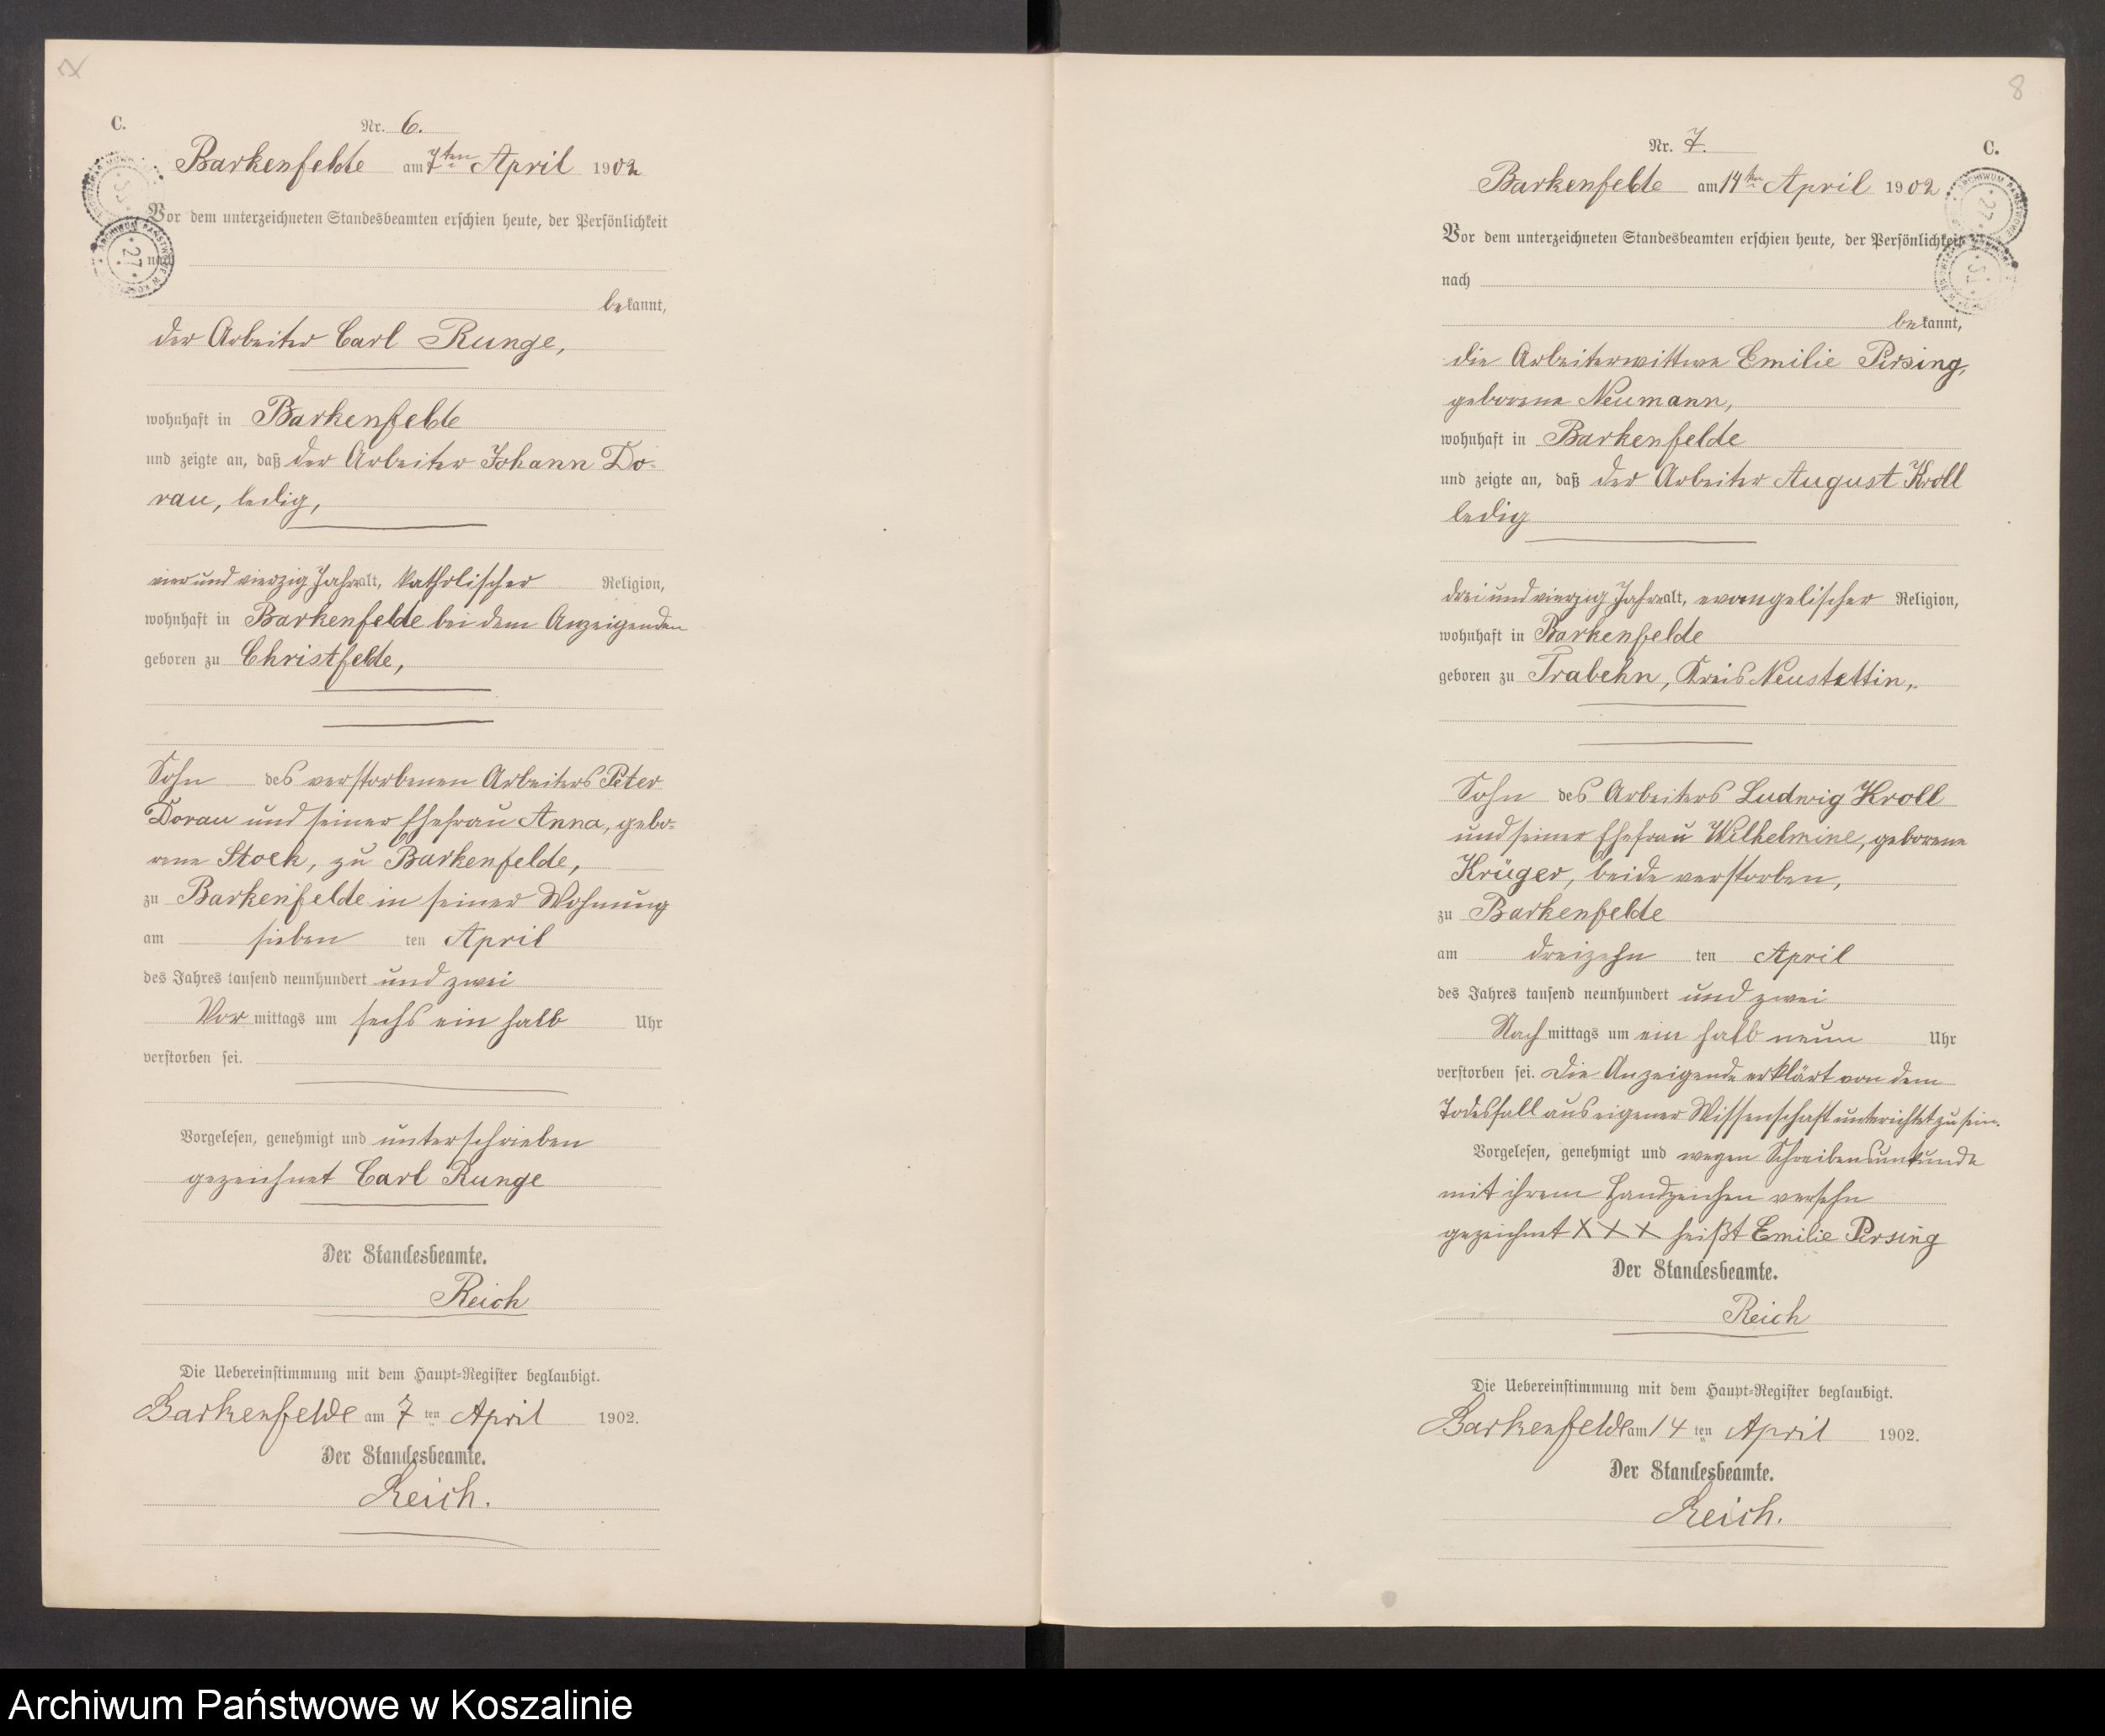 C.
Nr. 6.
Barkenfelde am 7ten April 1902
Vor dem unterzeichneten Standesbeamten erschien heute, der Persönlichkeit
nach
bekannt,
der Arbeiter Carl Runge,
wohnhaft in Barkenfelde
und zeigte an, daß der Arbeiter Johann Do-
rau, ledig,
vier und vierzig Jahre alt, katholischer Religion,
wohnhaft in Barkenfelde bei dem Anzeigenden
geboren zu Christfelde,
Sohn des verstorbenen Arbeiters Peter
Dorau und seiner Ehefrau Anna, gebo-
rene Stock, zu Barkenfelde,
zu Barkenfelde in seiner Wohnung
am sieben ten April
des Jahres tausend neunhundert und zwei
Vor mittags um sechs ein halb Uhr
verstorben sei.
Vorgelesen, genehmigt und unterschrieben
gezeichnet Carl Runge
Der Standesbeamte.
Reich
Die Uebereinstimmung mit dem Haupt-Register beglaubigt.
Barkenfelde am 7 ten April 1902.
Der Standesbeamte.
Reich.
8
Nr. 7.
C.
Barkenfelde am 14ten April 1902
Vor dem unterzeichneten Standesbeamten erschien heute, der Persönlichkeit
nach
bekannt,
die Arbeiterwittwe Emilie Persing,
geborene Neumann,
wohnhaft in Barkenfelde
und zeigte an, daß der Arbeiter August Kroll
ledig
drei und vierzig Jahre alt, evangelischer Religion,
wohnhaft in Barkenfelde
geboren zu Trabehn, Kreis Neustettin,
Sohn des Arbeiters Ludwig Kroll
und seiner Ehefrau Wilhelmine, geborene
Krüger, beide verstorben,
zu Barkenfelde
am dreizehn ten April
des Jahres tausend neunhundert und zwei
Nach mittags um ein halb neun Uhr
verstorben sei. Die Anzeigende erklärt von dem
Todesfall aus eigener Wissenschaft unterichtet zu sein.
Vorgelesen, genehmigt und wegen Schreibensunkunde
mit ihrem Handzeichen versehn
gezeichnet X X X heißt Emilie Persing
Der Standesbeamte.
Reich
Die Uebereinstimmung mit dem Haupt-Register beglaubigt.
Barkenfelde am 14 ten April 1902.
Der Standesbeamte.
Reich.
Archiwum Państwowe w Koszalinie